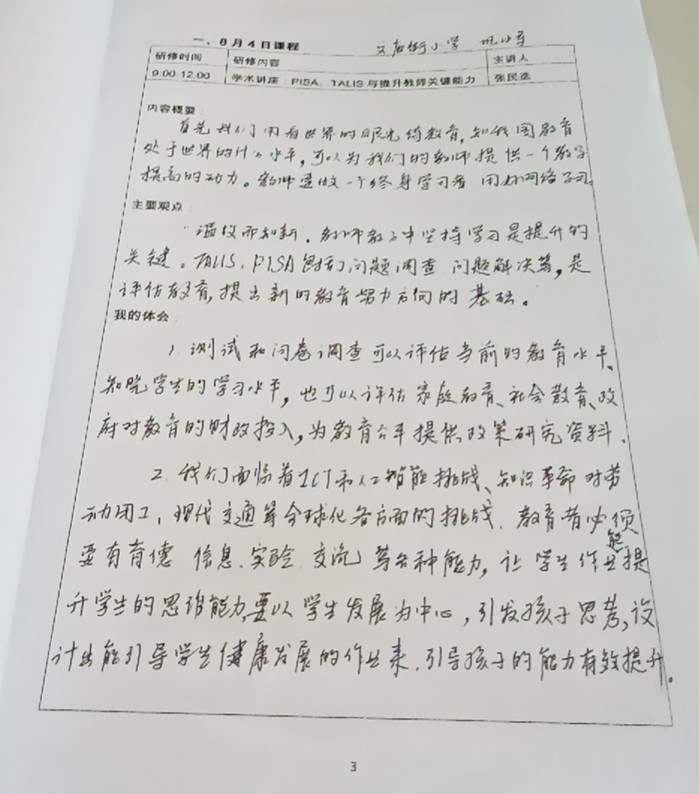 一、8月4日课程 文庙街小学
研修时间 研修内容 主讲人
9:00-12:00 学术讲座：PISA、TALIS与提升教师关键能力 张民选
内容概要：
首先我们用看世界的眼光待教育，知我国教育
处于世界的什么水平，可以为我们的教师提供一个教学
提高的动力。教师要做一个终身学习者 用好网络
主要观点：
温故而知新，教师教学中坚持学习是提升的
关键。TALIS、PISA包括问题调查 问题解决等，是
评估教育，提出新的教育努力方向的基础。
我的体会：
1. 测试和问卷调查可以评估当前的教育水平、
知晓学生的学习水平，也可以评估家庭教育、社会教育、政
府对教育的财政投入，为教育公平提供政策研究资料。
2. 我们面临着ICT和人工智能挑战、知识革命对劳
动团工，现代交通等全球化各方面的挑战。教育者必须
要有育德 信息、实验 交流等各种能力，让学生作业能提
升学生的思维能力，要以学生发展为中心，引发孩子思考，设
计出能引导学生健康发展的作业来，引导孩子的能力有效提升。
3